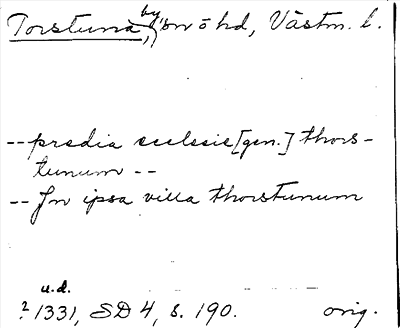 Torstuna, by, sn o hd, Västm. l.
-- predia ecclesie [gen.] thors-
tunum --
-- Jn ipsa villa thorstunum
u.d.
? 1331, SD 4, s. 190. orig.